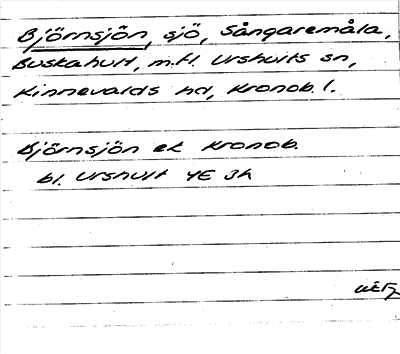 Björnsjön, sjö, Sångaremåla,
Buskahult, m.fl. Urshults sn,
Kinnevalds hd, Kronob. l.
Björnsjön ek Kronob.
bl. Urshult 4E 3h